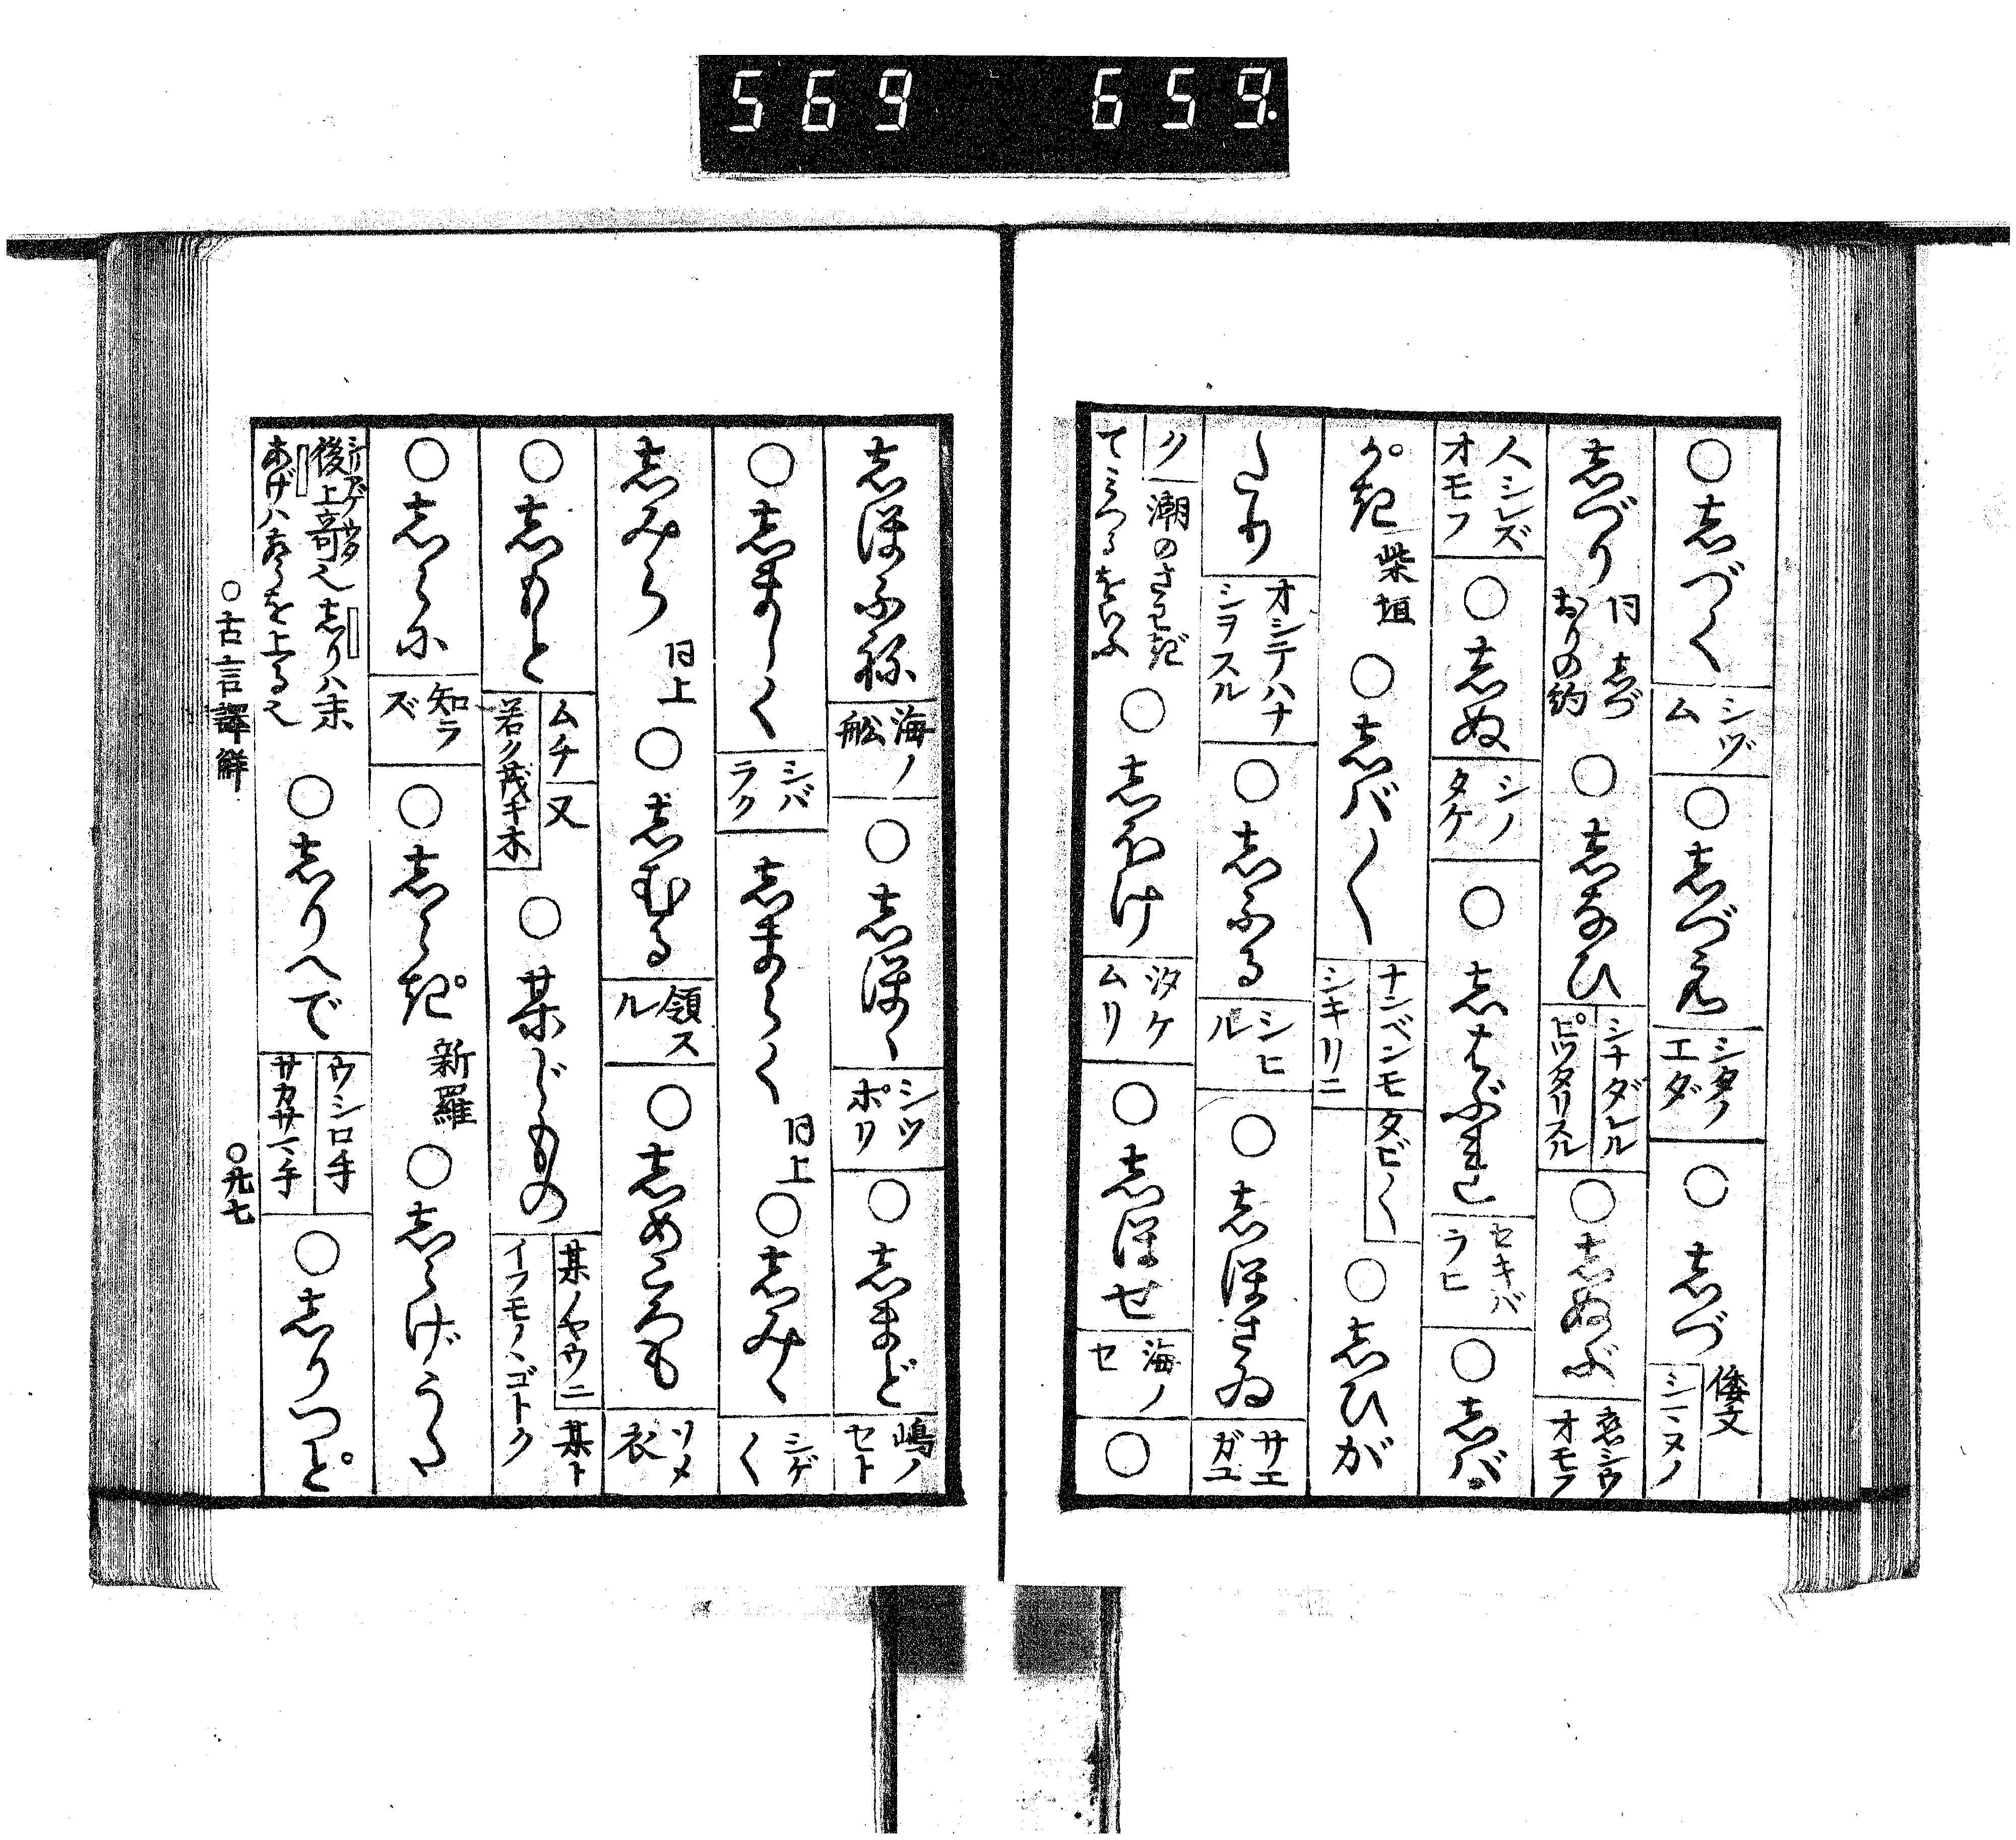 569 659.
○しづく シヅム ○しづえ シタノエダ ○しづ 倭文 シヅヌノ
しづり 同 しづおりの約 ○しなひ シナダレル ピツタリスル ○しぬぶ 恋シウオモフ
人シレズオモフ ○しぬ シノタケ ○しはぶ セキバラヒ ○しば
がき 柴垣 ○しば〱 ナンベンモ タビ〱 シキリニ ○しひが
たり オシテハナシヲスル ○しふる シヒル ○しほさゐ サエガエ
ク 潮のさわぎてみつるをいふ ○しほけ 汐ケムリ ○しほせ 海ノセ ○
しほふね 海ノ舩 ○しほゝ シツポリ ○しまど 嶋ノセト
○しましく シバラク しまらく 同上 ○しみゝ シゲ〱
しみら 同上 ○しむる 領スル ○しめころも ソメ衣
○しもと ムチ 又 若ク茂キ木 ○某じもの 某ノヤウニ 某トイフモノヽゴトク
○しらに 知ラズ ○しらき゚ 新羅 ○しらげうた
後上哥也 しりハ末あげハ声を上る也 ○しりへで ウシロ手 サカサマ手 ○しりつと゚
○古言譯解 ○九七